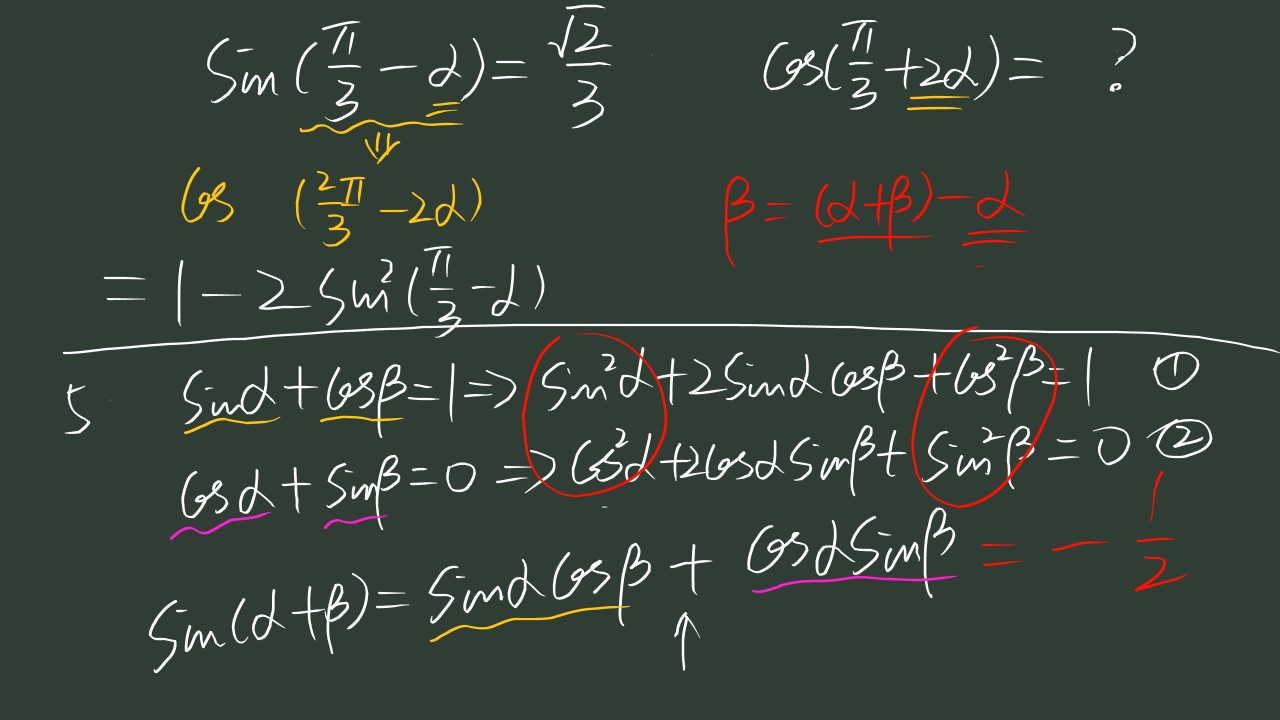 sin(π/3 - α) = √2/3 cos(π/3 + 2α) = ?
cos (2π/3 - 2α) β = (α+β) - α
= 1 - 2 sin²(π/3 - α)
5 sinα + cosβ = 1 => sin²α + 2sinα cosβ + cos²β = 1 ①
cosα + sinβ = 0 => cos²α + 2cosα sinβ + sin²β = 0 ②
sin(α+β) = sinα cosβ + cosα sinβ = - 1/2